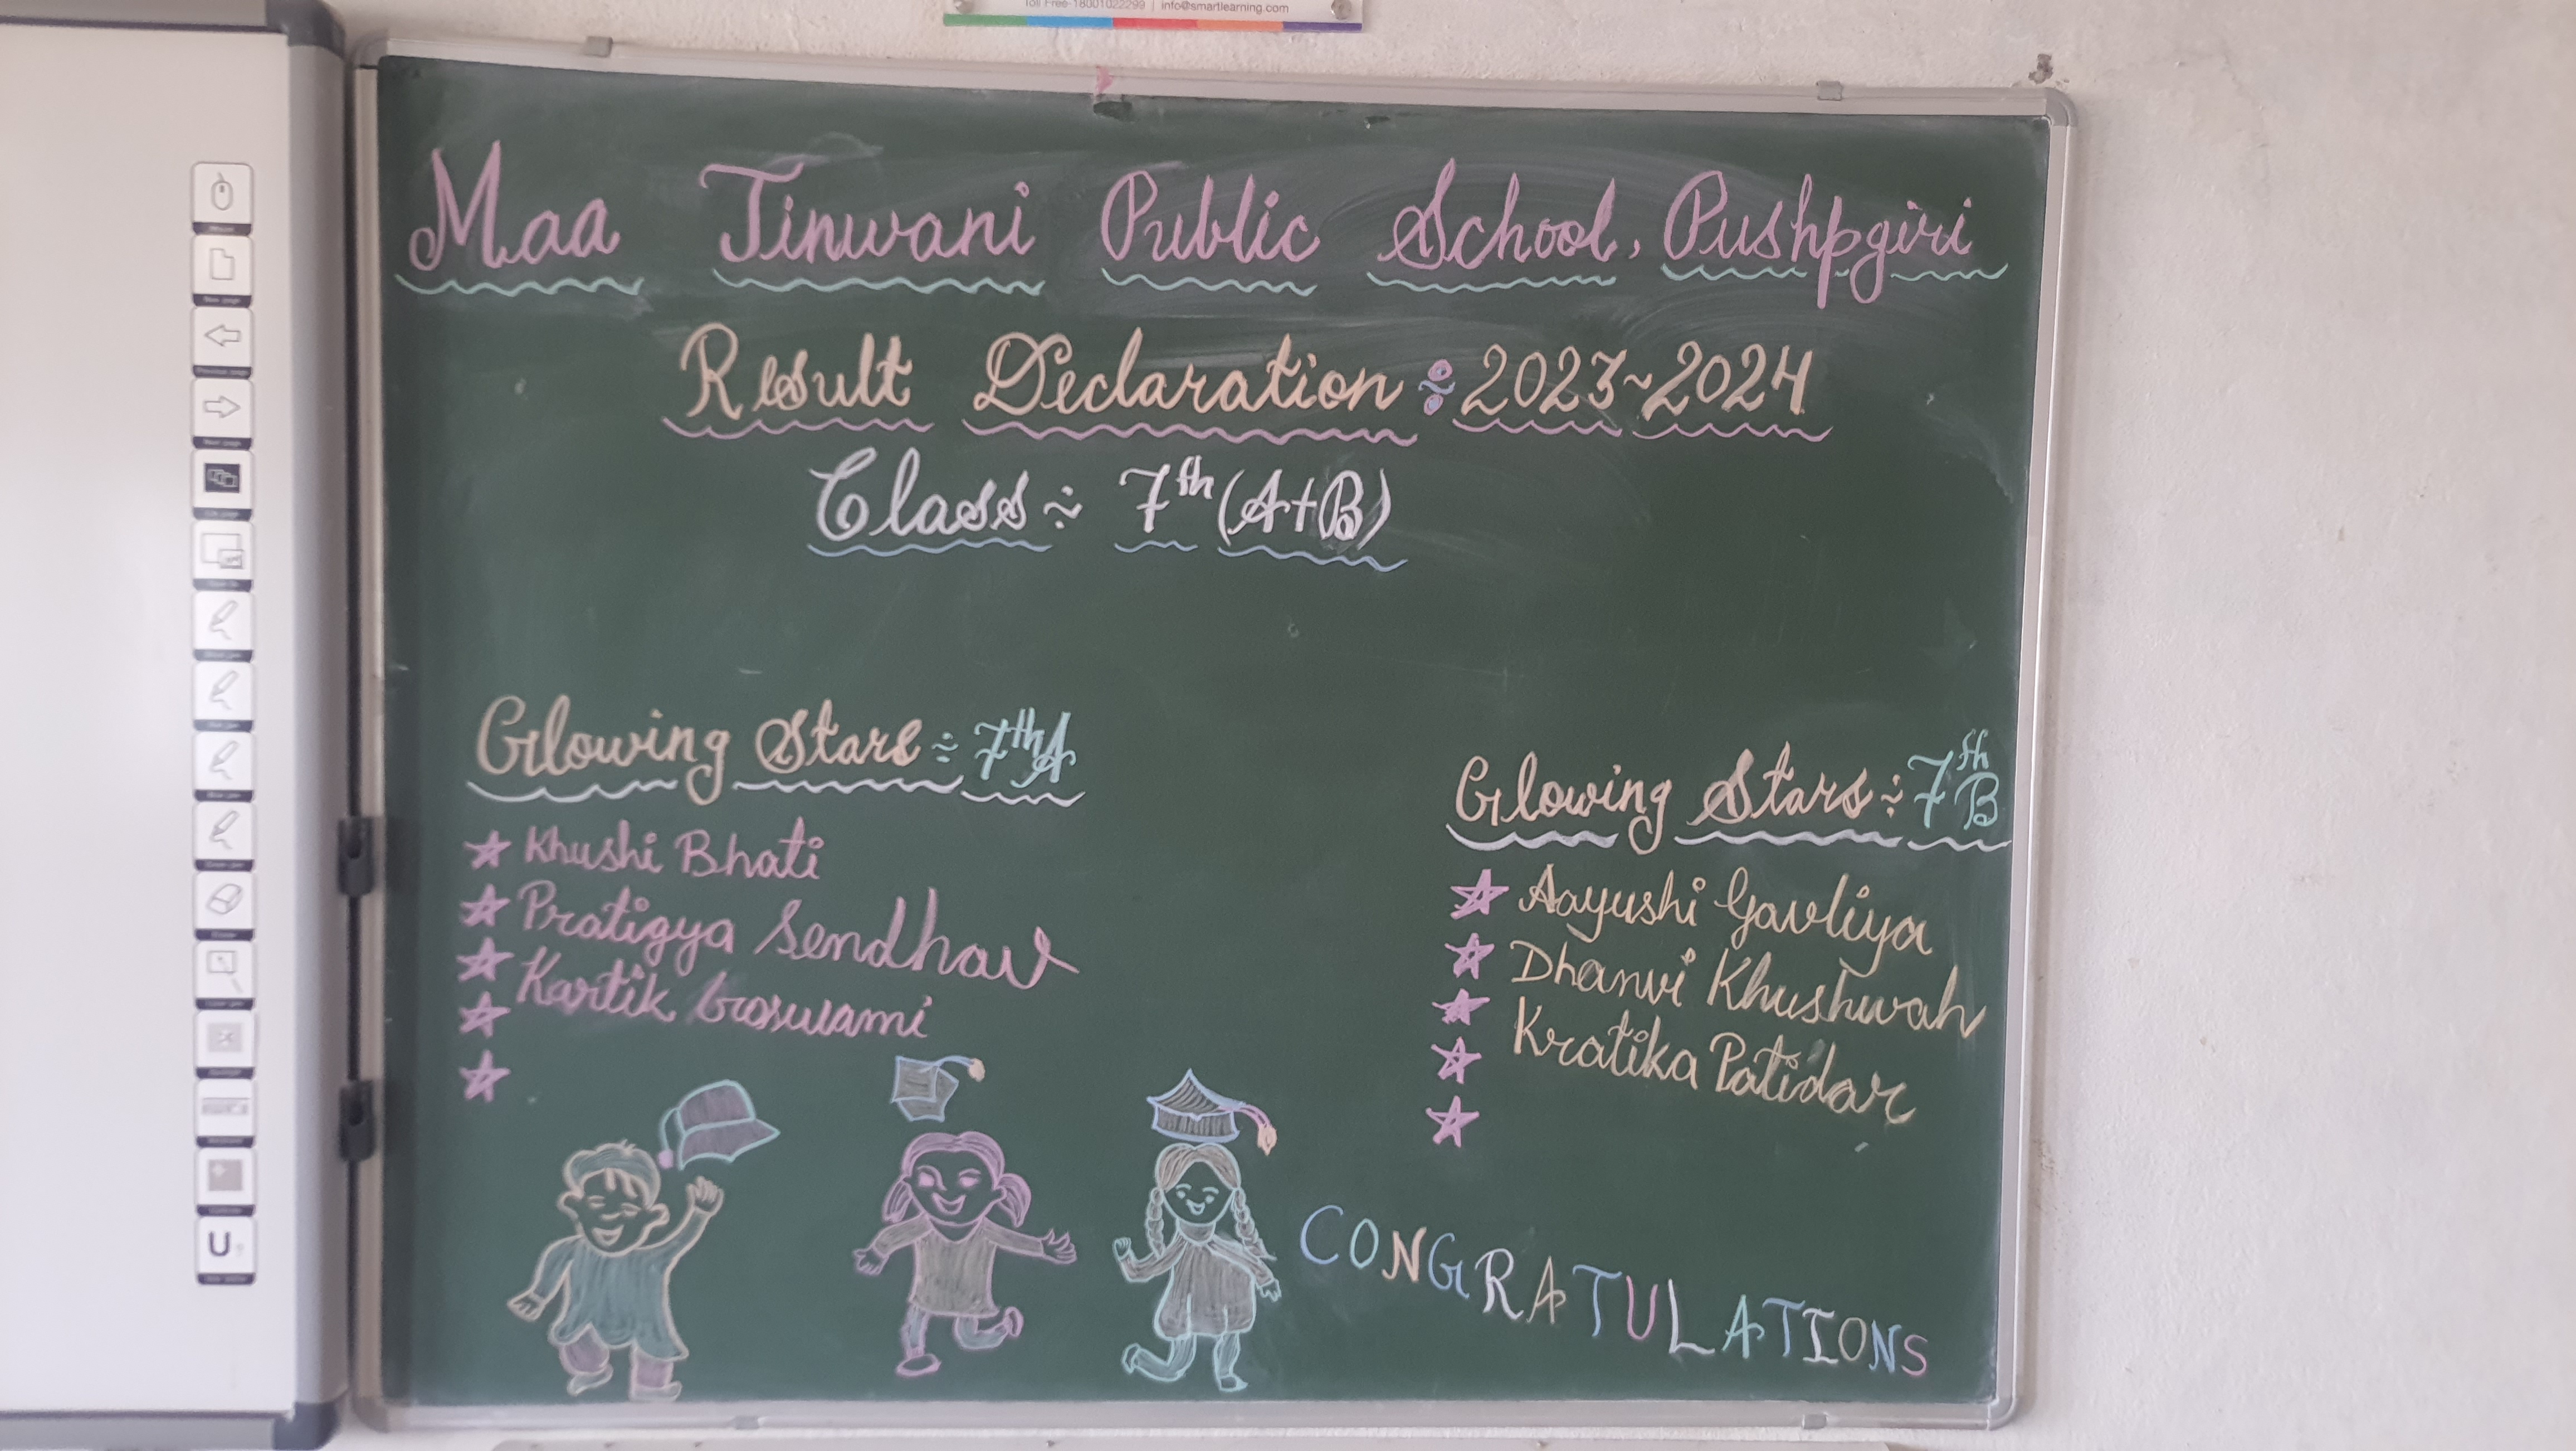 Toll Free-18001022299 | info@smartlearning.com
Maa Jinwani Public School, Pushpgiri
Result Declaration ÷ 2023~2024
Class ÷ 7th (A+B)
Glowing Stars ÷ 7th A
Khushi Bhati
Pratigya Sendhav
Kartik Goswami
Glowing Stars ÷ 7th B
Aayushi Gavliya
Dhanvi Khushwah
Kratika Patidar
CONGRATULATIONS